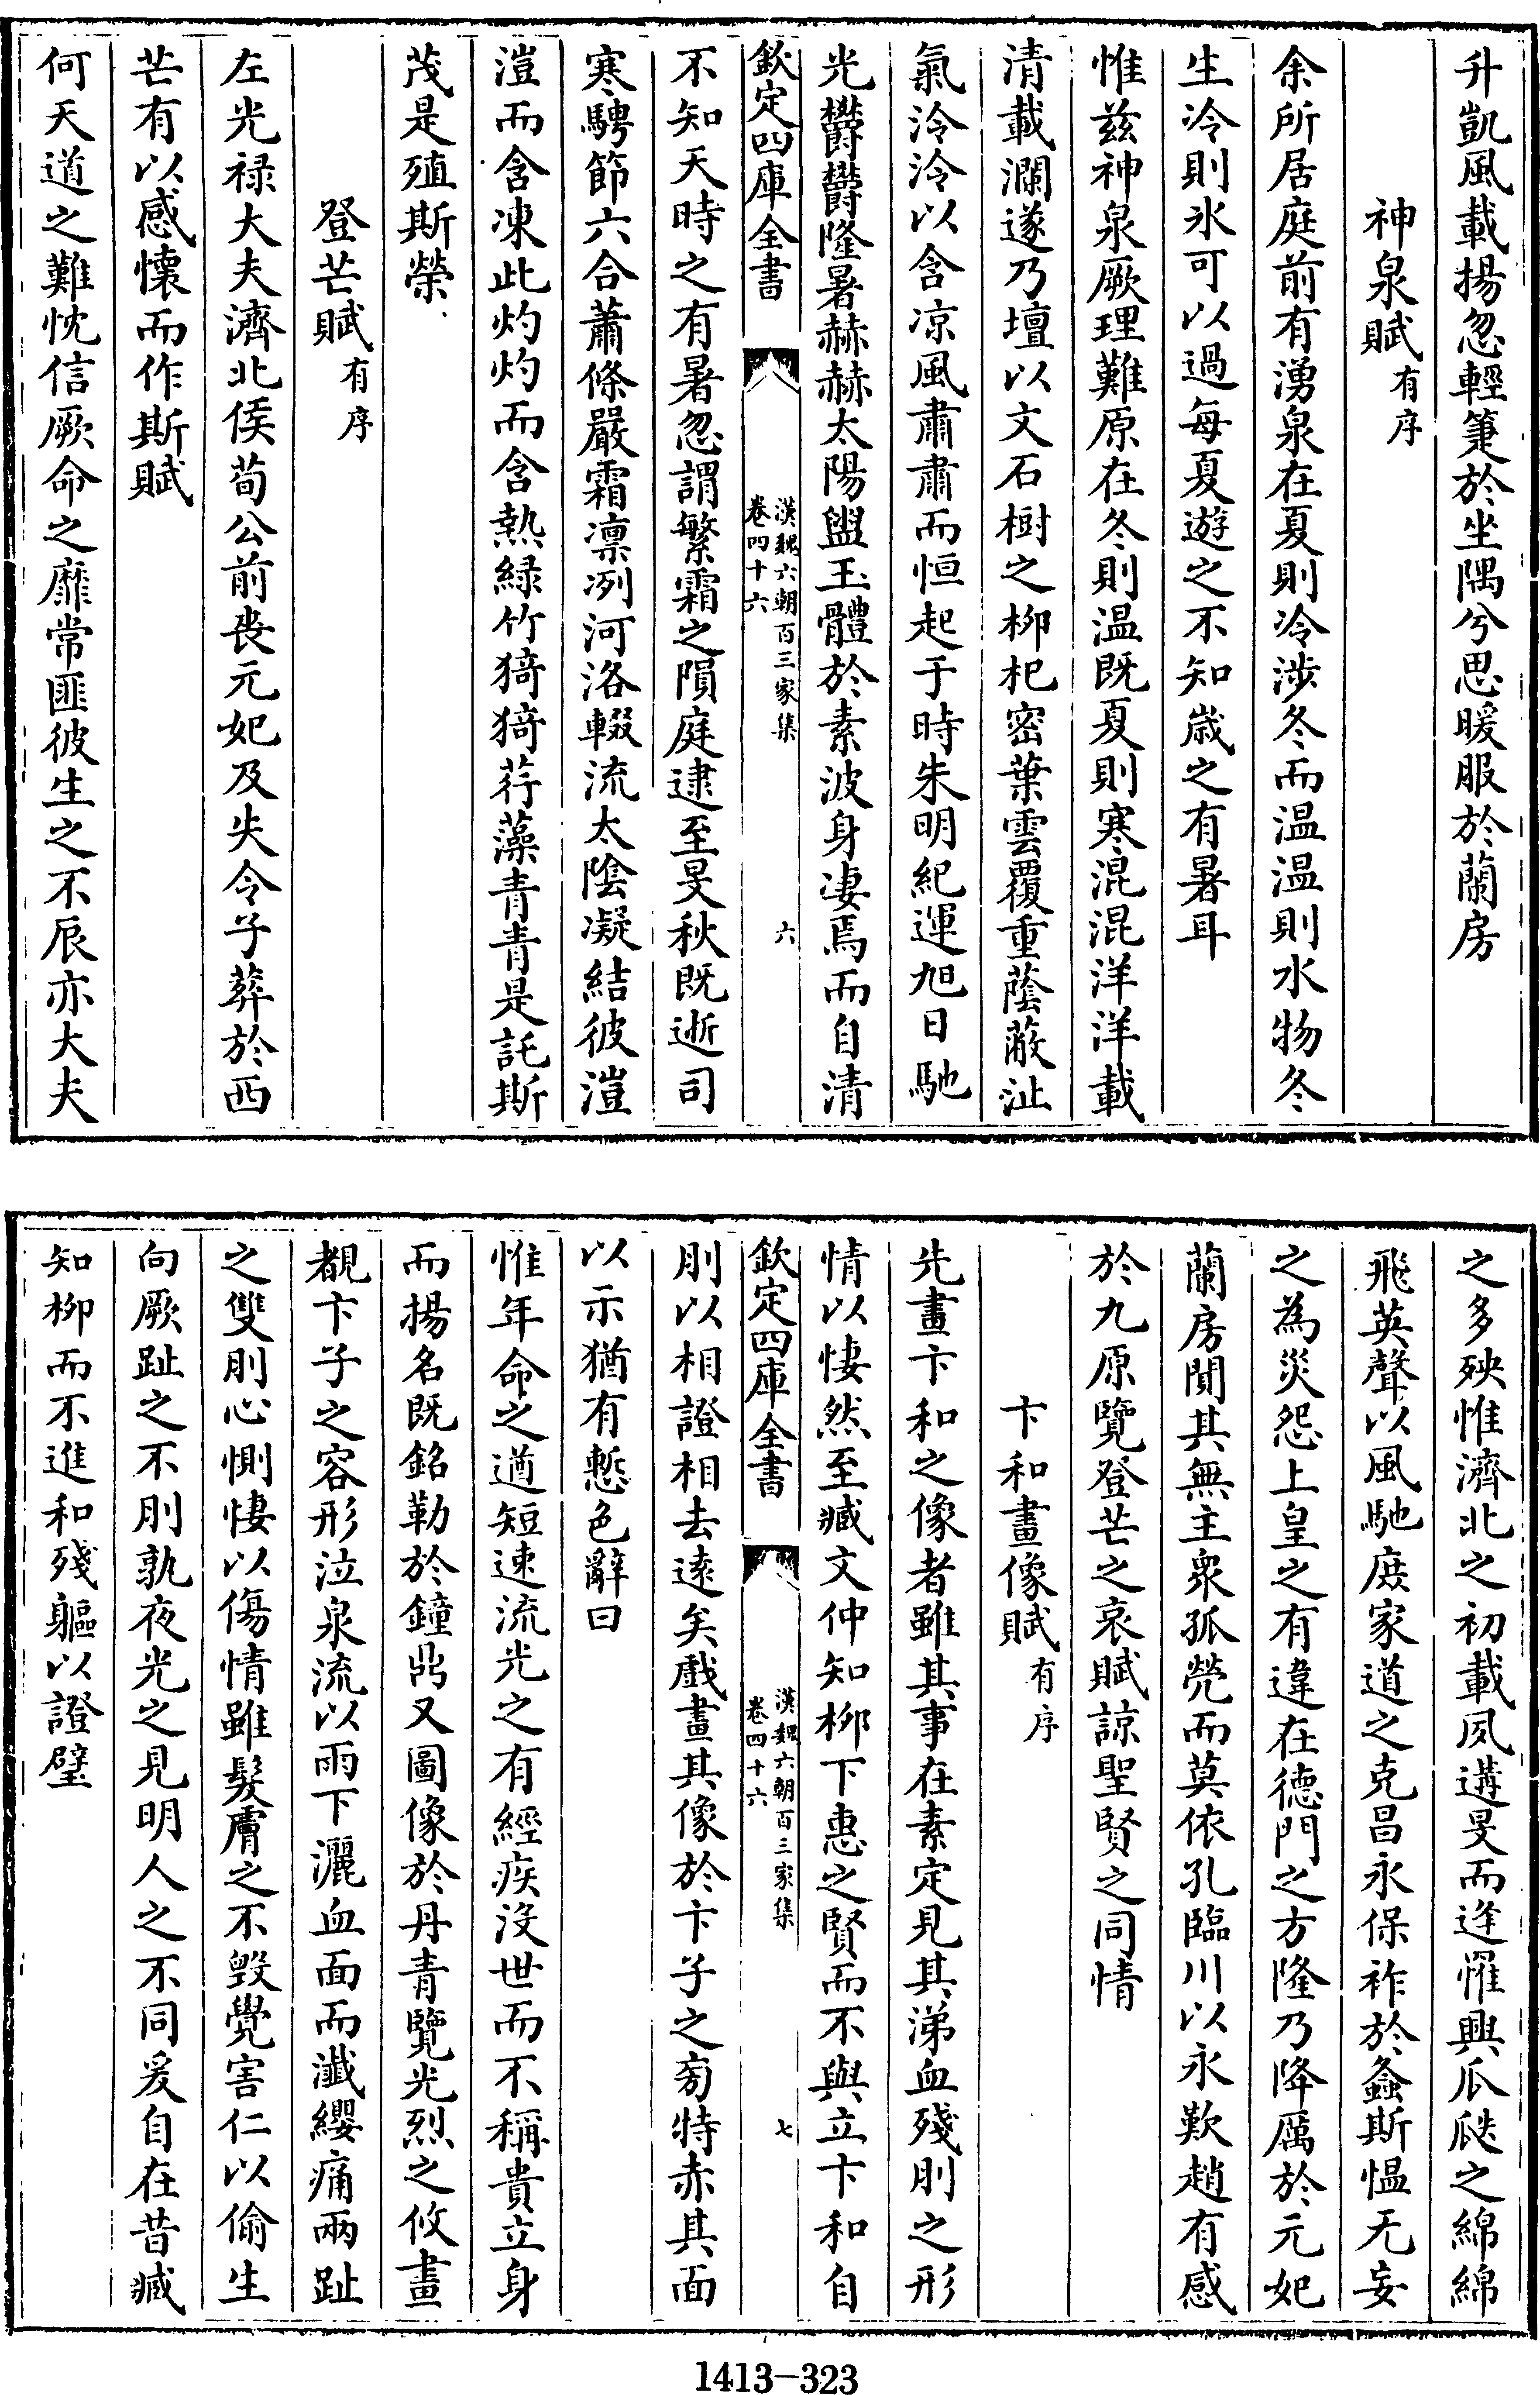 升凱風載揚忽輕箑於坐隅兮思暖服於蘭房
神泉賦有序
余所居庭前有湧泉在夏則冷涉冬而温温則水物冬
生冷則氷可以過每夏遊之不知歳之有暑耳
惟兹神泉厥理難原在冬則温既夏則寒混混洋洋載
清載瀾遂乃壇以文石樹之柳杞密葉雲覆重蔭蔽沚
氣泠泠以含凉風肅肅而恒起于時朱明紀運旭日馳
光欝欝隆暑赫赫太陽盥玉體於素波身凄焉而自清
欽定四庫全書
漢魏六朝百三家集
卷四十六
六
不知天時之有暑忽謂繁霜之隕庭逮至旻秋既逝司
寒騁節六合蕭條嚴霜凛冽河洛輟流太陰凝結彼溰
溰而含凍此灼灼而含熱緑竹猗猗荇藻青青是託斯
茂是殖斯榮
登芒賦有序
左光禄大夫濟北侯荀公前喪元妃及失令子葬於西
芒有以感懷而作斯賦
何天道之難忱信厥命之靡常匪彼生之不辰亦大夫
之多殃惟濟北之初載夙遘旻而逢罹興瓜瓞之綿綿
飛英聲以風馳庶家道之克昌永保祚於螽斯愠无妄
之為災怨上皇之有違在德門之方隆乃降厲於元妃
蘭房閴其無主衆孤煢而莫依孔臨川以永歎趙有感
於九原覽登芒之哀賦諒聖賢之同情
卞和畫像賦有序
先畫卞和之像者雖其事在素定見其涕血殘刖之形
情以悽然至臧文仲知柳下惠之賢而不與立卞和自
欽定四庫全書
漢魏六朝百三家集
卷四十六
七
刖以相證相去遠矣戲畫其像於卞子之旁特赤其面
以示猶有慙色辭曰
惟年命之遒短速流光之有經疾沒世而不稱貴立身
而揚名既銘勒於鐘鼎又圖像於丹青覽光烈之攸畫
覩卞子之容形泣泉流以雨下灑血面而瀸纓痛兩趾
之雙刖心惻悽以傷情雖髮膚之不毀覺害仁以偷生
向厥趾之不刖孰夜光之見明人之不同爰自在昔臧
知柳而不進和殘軀以證璧
1413-323